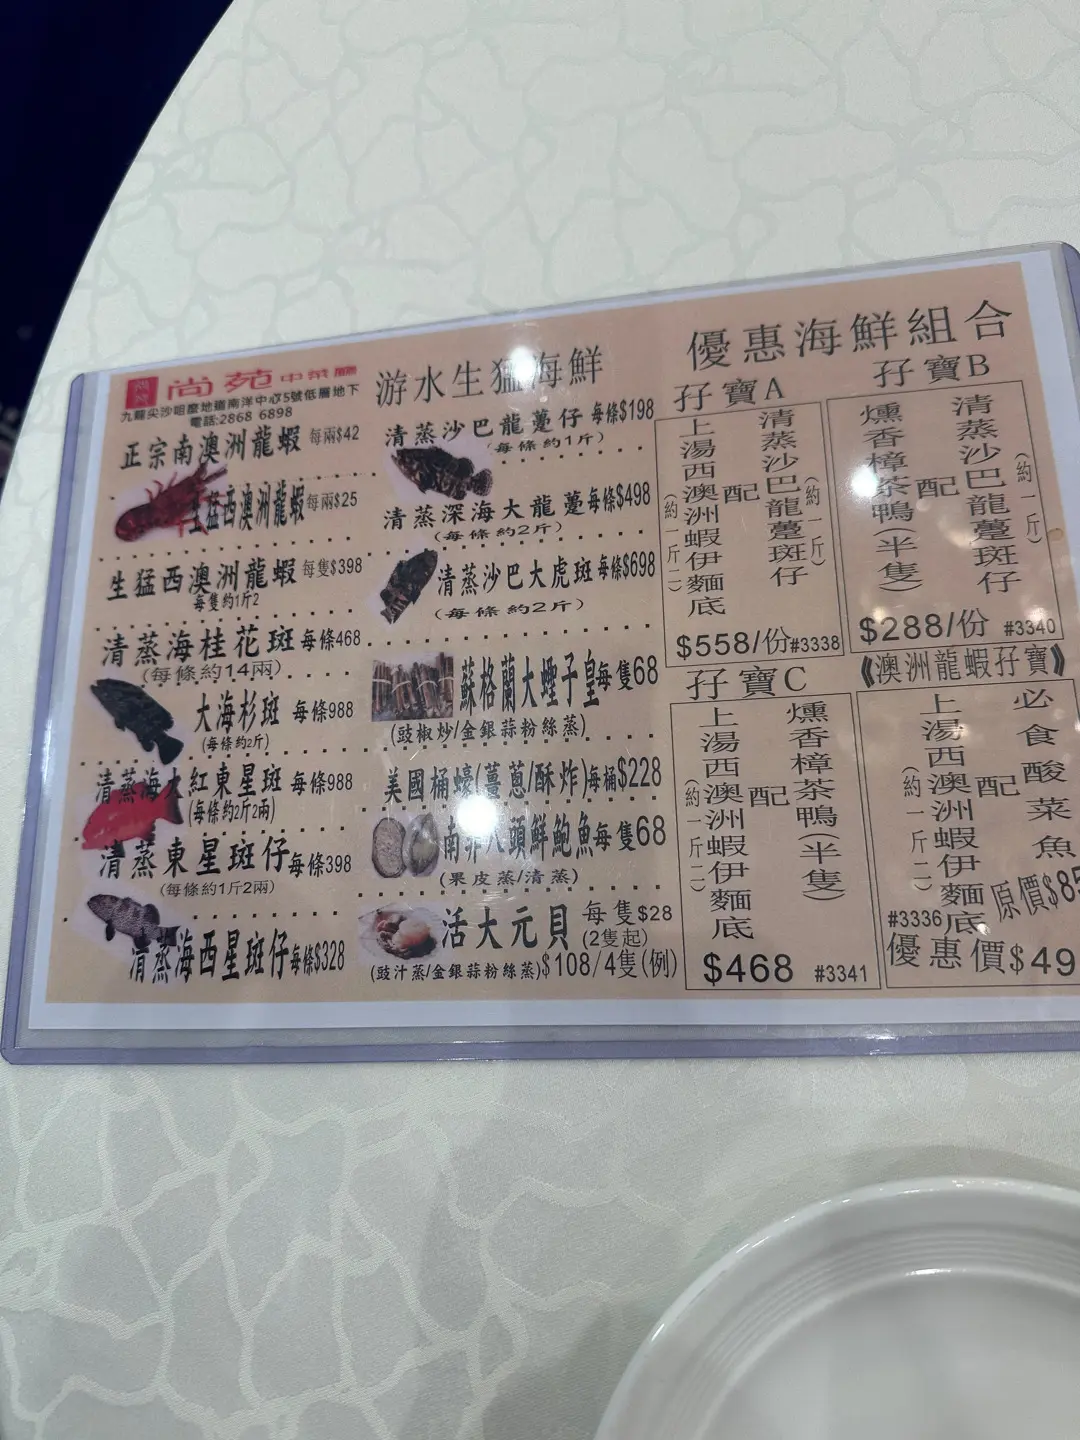 尚苑中菜廳
九龍尖沙咀麼地道南洋中心5號低層地下
電話:2868 6898
正宗南澳洲龍蝦 每兩$42
生猛西澳洲龍蝦 每兩$25
生猛西澳洲龍蝦 每隻$398
每隻約1斤2
清蒸海桂花斑 每條468
(每條約14兩)
大海杉斑 每條988
(每條約2斤)
清蒸海大紅東星斑 每條988
(每條約2斤2兩)
清蒸東星斑仔 每條398
(每條約1斤2兩)
清蒸海西星斑仔 每條$328
游水生猛海鮮
清蒸沙巴龍躉仔 每條$198
(每條約1斤)
清蒸深海大龍躉 每條$498
(每條約2斤)
清蒸沙巴大虎斑 每條$698
(每條約2斤)
蘇格蘭大蟶子皇 每隻68
(豉椒炒/金銀蒜粉絲蒸)
美國桶蠔(薑蔥/酥炸) 每桶$228
南非八頭鮮鮑魚 每隻68
(果皮蒸/清蒸)
活大元貝 每隻$28
(2隻起)
(豉汁蒸/金銀蒜粉絲蒸) $108/4隻(例)
優惠海鮮組合
孖寶A
清蒸沙巴龍躉斑仔
(約一斤)
配
上湯西澳洲蝦伊麵底
(約一斤二)
$558/份 #3338
孖寶B
清蒸沙巴龍躉斑仔
(約一斤)
配
燻香樟茶鴨(半隻)
$288/份 #3340
孖寶C
燻香樟茶鴨(半隻)
配
上湯西澳洲蝦伊麵底
(約一斤二)
$468 #3341
《澳洲龍蝦孖寶》
必食酸菜魚
配
上湯西澳洲蝦伊麵底
(約一斤二)
原價$85
#3336
優惠價$49